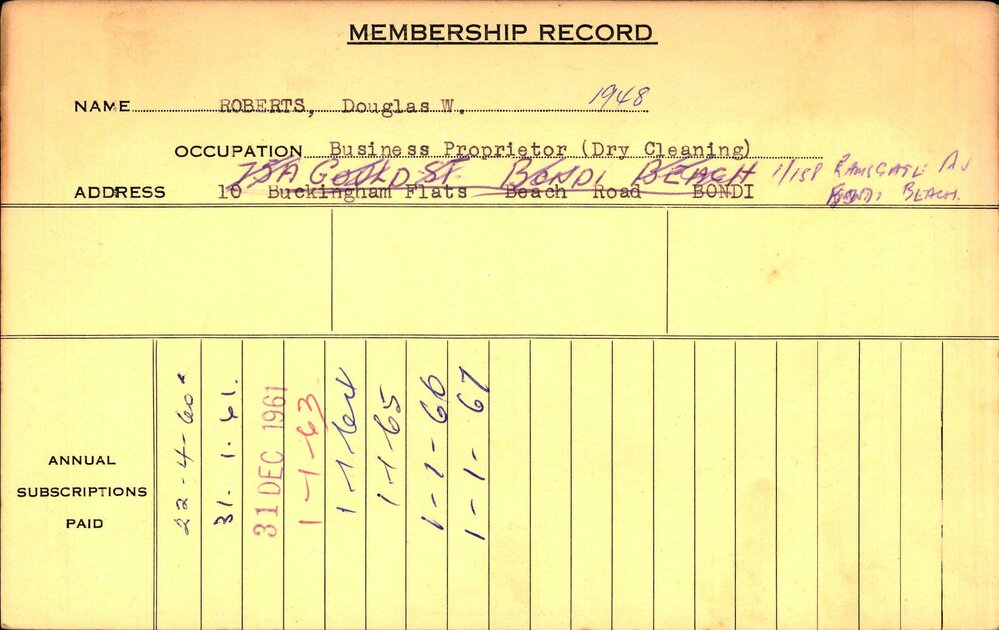 MEMBERSHIP RECORD
NAME ROBERTS, Douglas W. 1948
OCCUPATION Business Proprietor (Dry Cleaning)
75A GOULD ST. BONDI BEACH 1/158 RAMSGATE AV
ADDRESS 10 Buckingham Flats Beach Road BONDI BONDI BEACH.
ANNUAL SUBSCRIPTIONS PAID
22-4-60
31.1.61.
31 DEC 1961
1-1-63
1-1-64
1-1-65
1-1-66
1-1-67